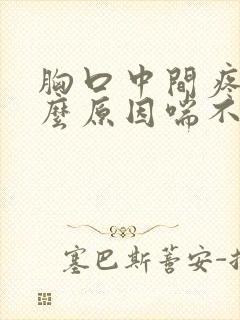 胸口中間疼
麼原因喘不
塞巴斯蒈安-